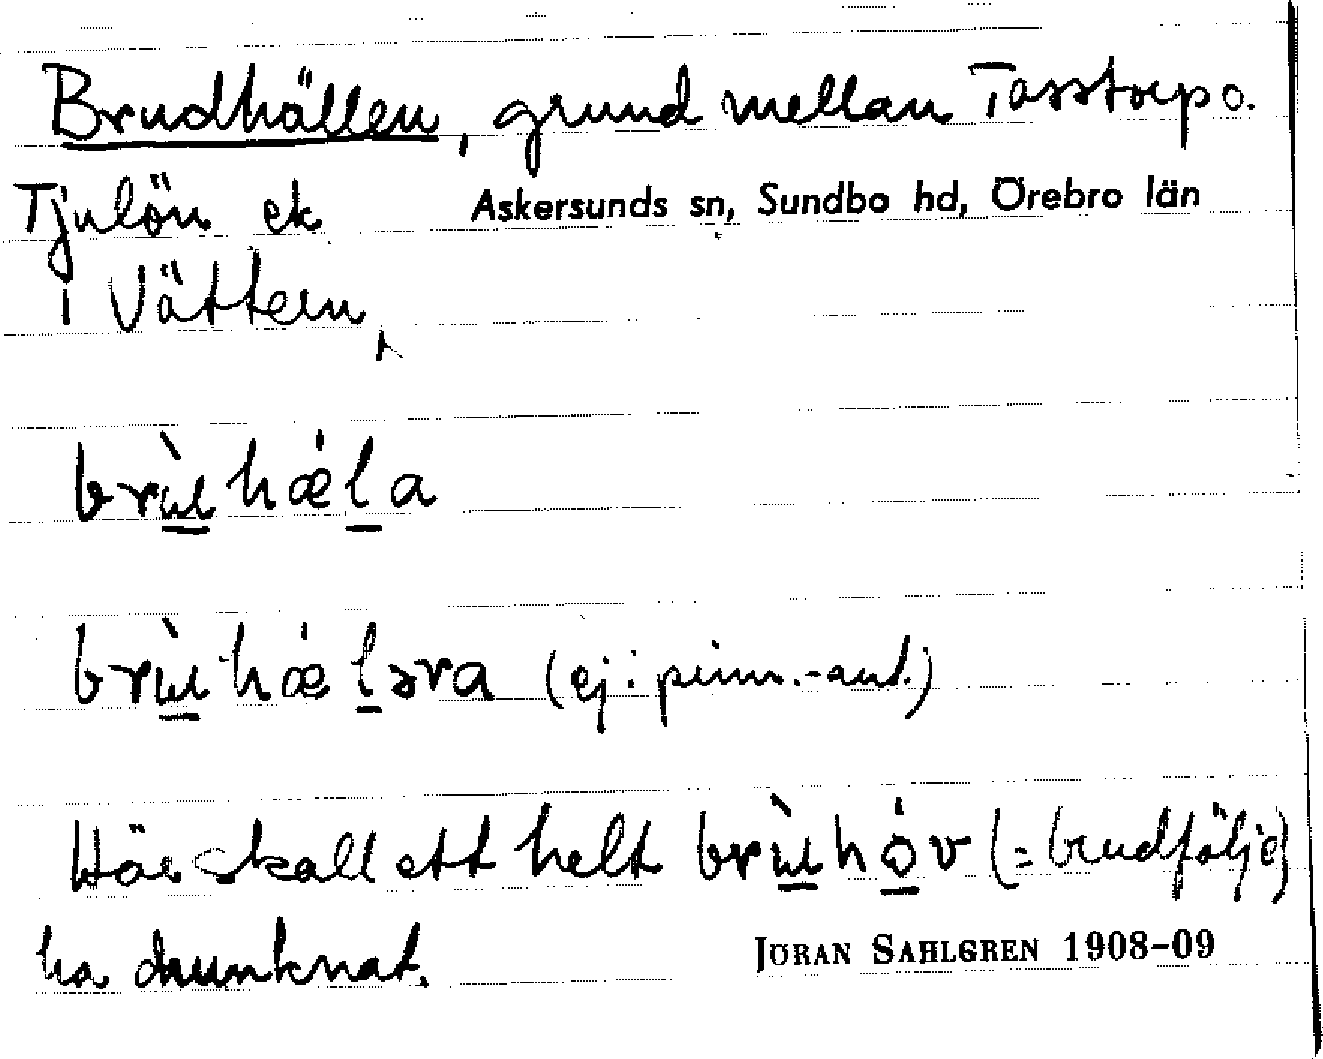 Brudhällen, grund mellan Tosstorp o.
Tjulön ek Askersunds sn, Sundbo hd, Örebro län
i Vättern
brɯ̀hǽla
brɯ̀hǽləra (ej: -ant.)
Här skall ett helt brɯ̀hóv (= brudfölje)
ha drunknat.
JÖRAN SAHLGREN 1908-09